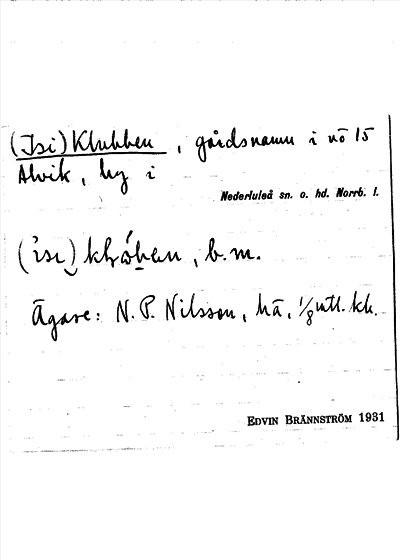 (Isi)Klubben, gårdsnamn i nö 15
Alvik, by i
Nederluleå sn. o. hd. Norrb. l.
b. m.
Ägare: N. P. Nilsson, hä, 1/8 mtl. kk.
EDVIN BRÄNNSTRÖM 1931